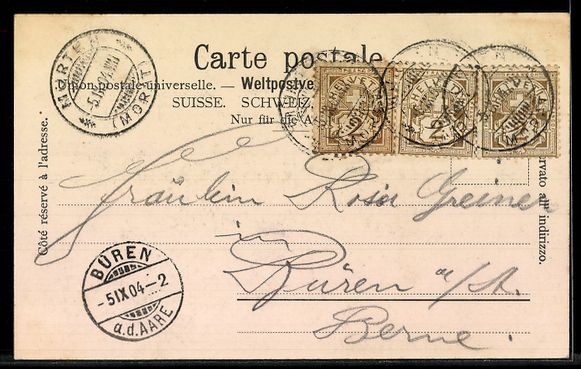 Carte postale
Union postale universelle. — Weltpostve
SUISSE. SCHWEIZ.
Nur für die A
Côté réservé à l'adresse.
ervato all' indirizzo.
MURTEN
(MORAT)
-5.IX.04.VIII
HELVETIA
2
HELVETIA
Fräulein Rosa Greiner
in
Büren a/A.
Berne.
BÜREN
-5 IX 04 - 2
a.d. AARE